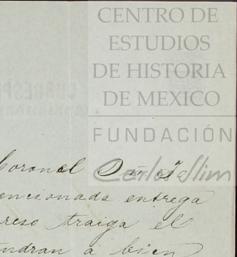 CENTRO DE
ESTUDIOS
DE HISTORIA
DE MEXICO
FUNDACIÓN
Carlos Slim
Coronel
encionada entrega
reso traiga el
ndran a bien